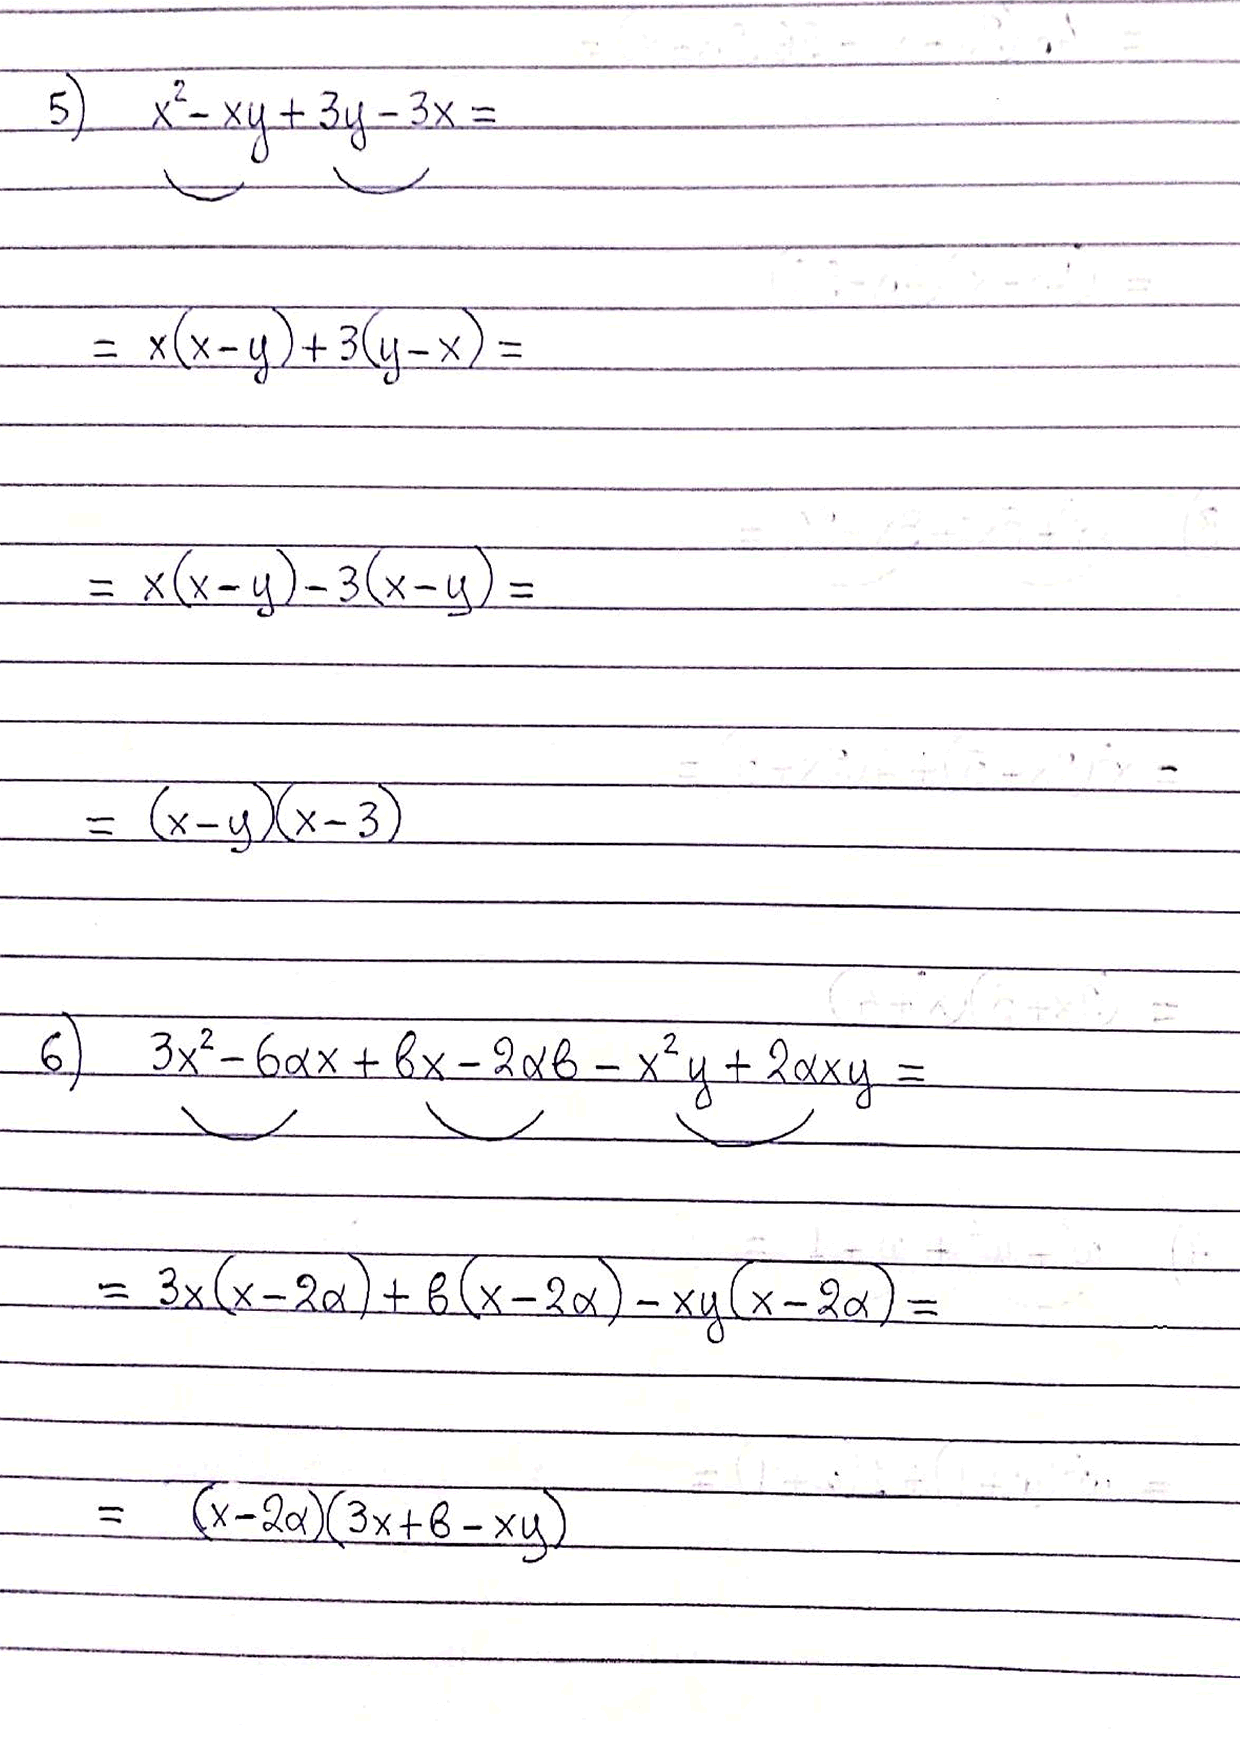 5) x² - xy + 3y - 3x =
= x(x-y) + 3(y-x) =
= x(x-y) - 3(x-y) =
= (x-y)(x-3)
6) 3x² - 6αx + βx - 2αβ - x²y + 2αxy =
= 3x(x-2α) + β(x-2α) - xy(x-2α) =
= (x-2α)(3x+β-xy)